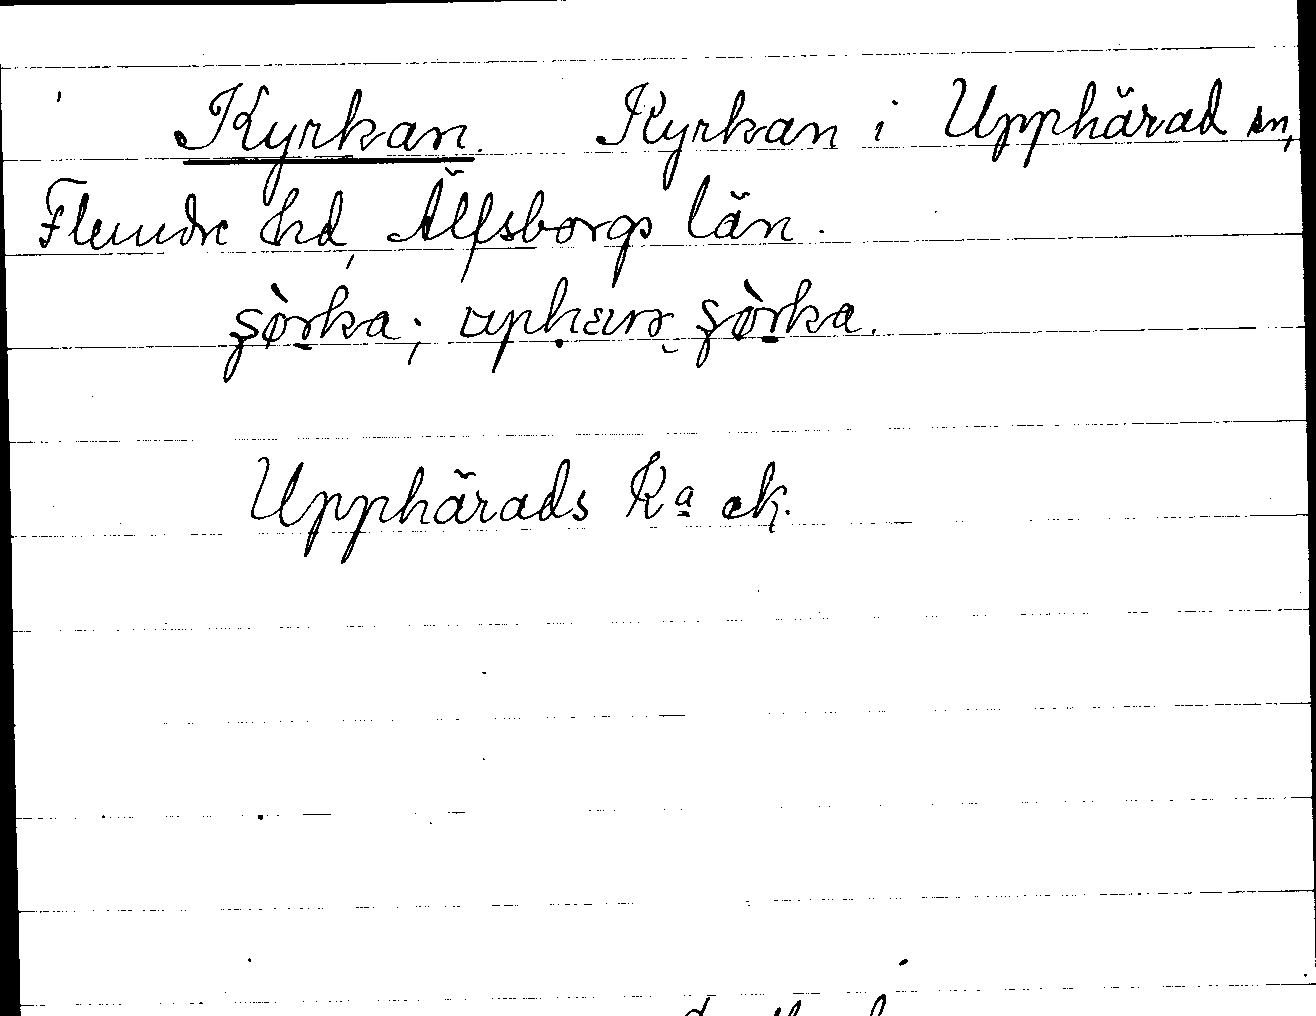 Kyrkan. Kyrkan i Upphärad sn,
Flundre hd, Älfsborgs län.
şòrka; uphærs şòrka.
Upphärads Ka ek.